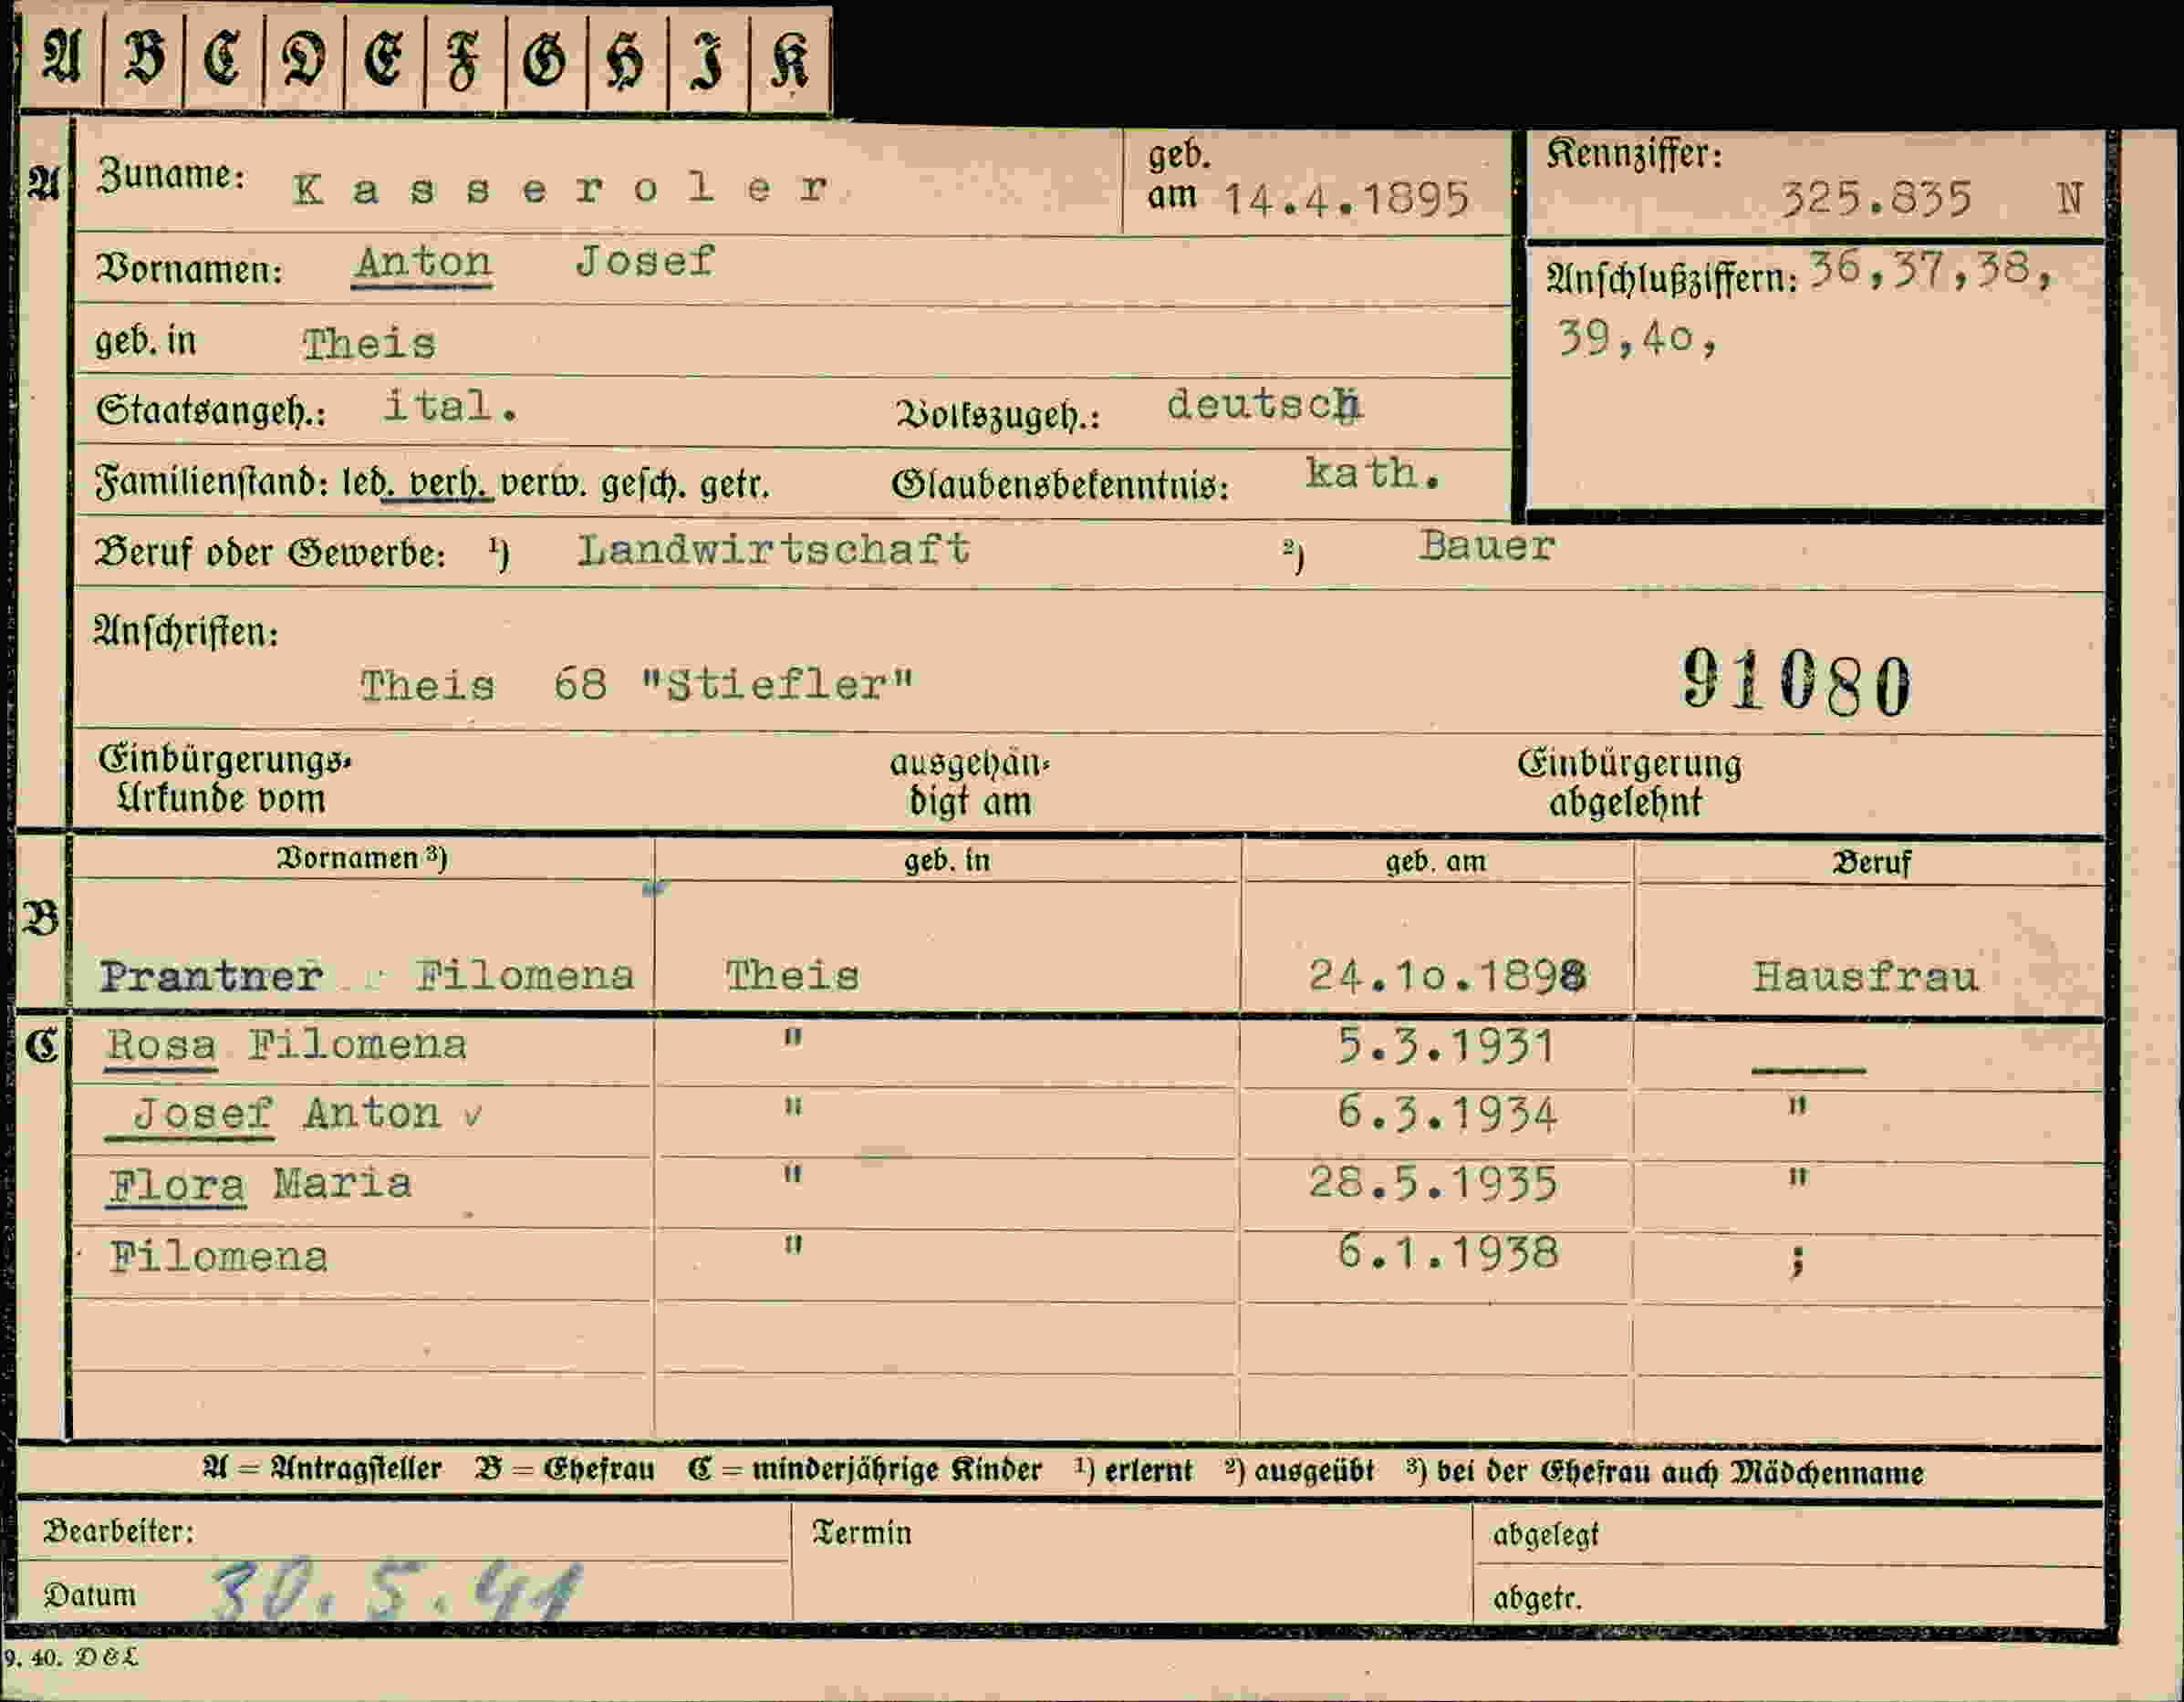 A B C D E F G H I K
A Zuname: Kasseroler geb. am 14.4.1895 Kennziffer: 325.835 N
Vornamen: Anton Josef Anschlußziffern: 36,37,38,
39,4o,
geb. in Theis
Staatsangeh.: ital. Volkszugeh.: deutsch
Familienstand: led. verh. verw. gesch. getr. Glaubensbekenntnis: kath.
Beruf oder Gewerbe: ¹) Landwirtschaft ²) Bauer
Anschriften:
Theis 68 "Stiefler" 91080
Einbürgerungs- ausgehän- Einbürgerung
Urkunde vom digt am abgelehnt
Vornamen ³) geb. in geb. am Beruf
B
Prantner Filomena Theis 24.1o.1898 Hausfrau
C Rosa Filomena " 5.3.1931 ——
Josef Anton v " 6.3.1934 "
Flora Maria " 28.5.1935 "
Filomena " 6.1.1938 ;
A = Antragsteller B = Ehefrau C = minderjährige Kinder ¹) erlernt ²) ausgeübt ³) bei der Ehefrau auch Mädchenname
Bearbeiter: Termin abgelegt
Datum 30.5.41 abgetr.
9. 40. D&L